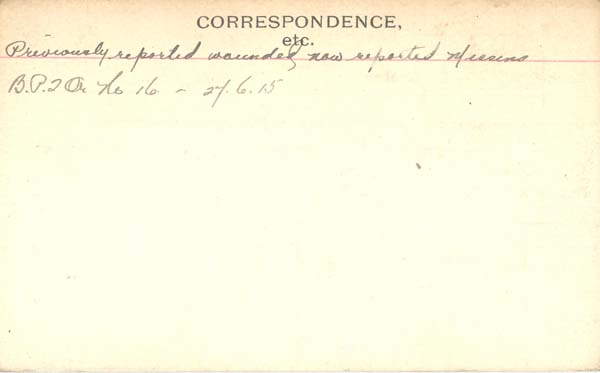 CORRESPONDENCE,
etc.
Previously reported wounded, now reported Missing
B.P.2 Or No 16 - 27.6.15